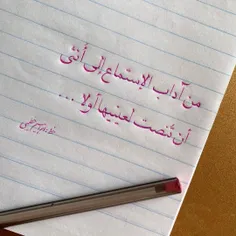 من آداب الإستماع إلى أنثى
أن تنصت لعينيها أولا ...